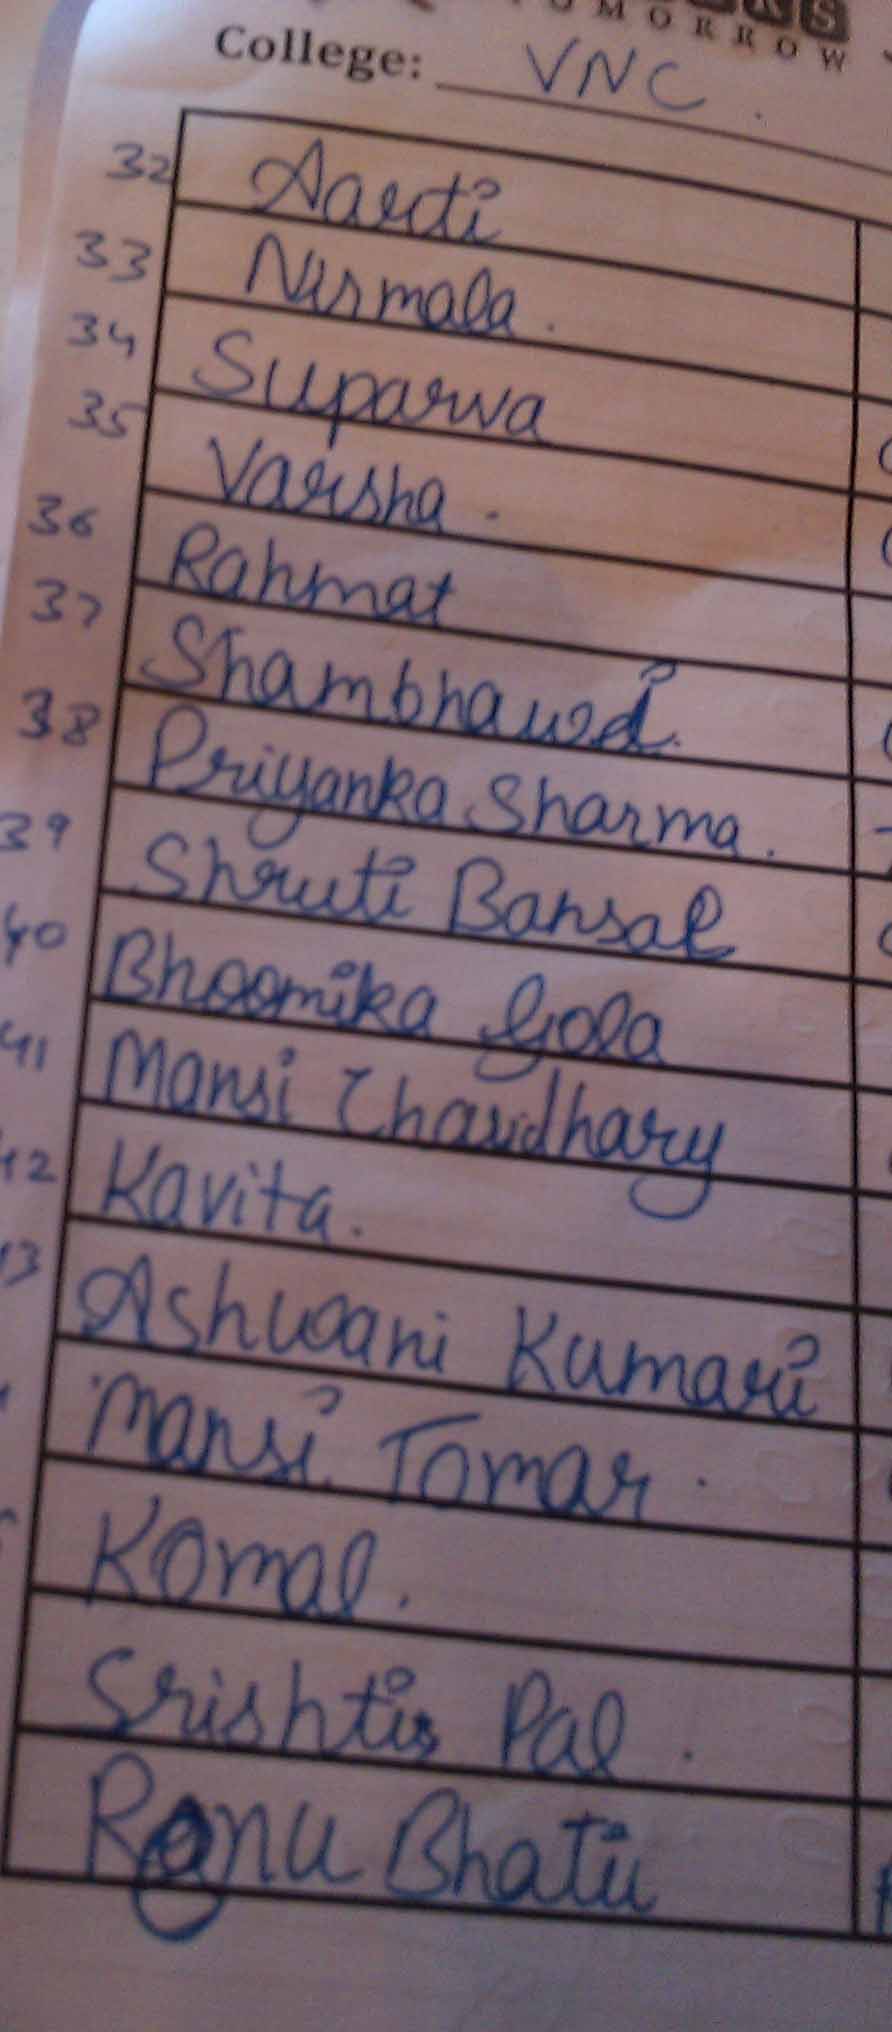 TOMORROW
College: VNC.
32 Aarti
33 Nirmala.
34 Suparwa
35 Varsha.
36 Rahmat
37 Shambhawi.
38 Priyanka Sharma.
39 Shruti Bansal
40 Bhoomika Gola
41 Mansi Chaudhary
42 Kavita.
Ashwani Kumari
Mansi Tomar.
Komal.
Srishti Pal.
Bhati